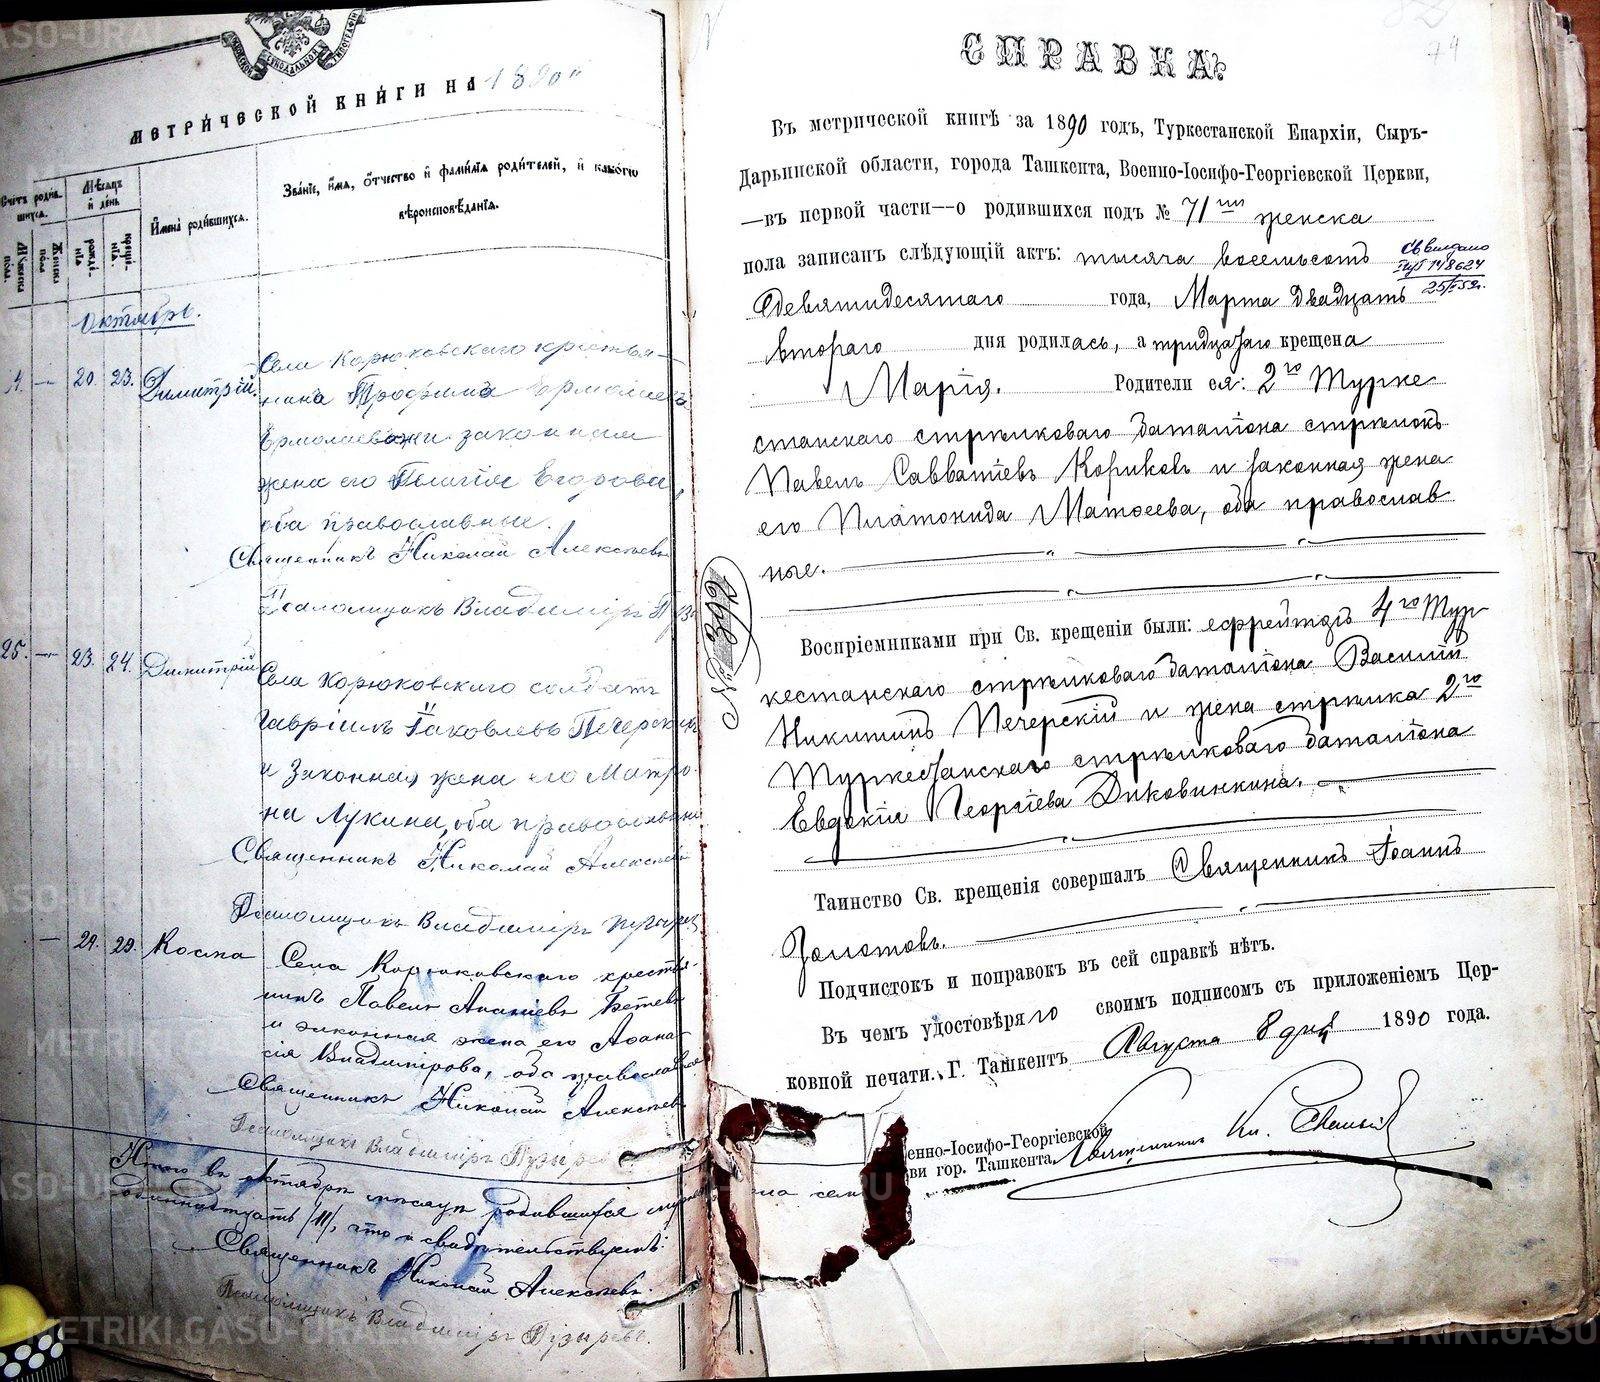 МЕТРИЧЕСКОЙ КНИГИ НА 1890 г.
Счетъ родившихся.
Мужеска пола
Женска пола
Мѣсяцъ и день
рожденія
крещенія.
Имена родившихся.
Званіе, имя, отчество и фамилія родителей, и какого
вѣроисповѣданія.
Октябрь.
— 20. 23. Димитрій.
Села Корюковскаго крестья-
нина
Ермолаева законная
жена его Пелагія Егорова,
оба православные.
Священникъ Николай Алексѣевъ
Псаломщикъ Владиміръ
25. — 23. 24. Димитрій
Села Корюковскаго солдатъ
Гавріилъ Іаковлевъ Печерскій
и законная жена его Матро-
на Лукина, оба православные
Священникъ Николай Алексѣевъ
Псаломщикъ Владиміръ Пузыревъ
— 29. Косма
Села Корюковскаго крестья-
нинъ Павелъ Ананіевъ
и законная жена его Аѳана-
сія Владимірова, оба православные
Священникъ Николай Алексѣевъ
Псаломщикъ Владиміръ Пузыревъ
Итого въ октябрѣ мѣсяцѣ родившихся
одиннадцать /11/, что и свидѣтельствуемъ:
Священникъ Николай Алексѣевъ.
Псаломщикъ Владиміръ Пузыревъ.
74
СПРАВКА.
Въ метрической книгѣ за 1890 годъ, Туркестанской Епархіи, Сыръ-
Дарьинской области, города Ташкента, Военно-Іосифо-Георгіевской Церкви,
—въ первой части—о родившихся подъ № 71 женска
пола записанъ слѣдующій актъ: тысяча восемьсотъ
девятидесятаго года, Марта двадцать
втораго дня родилась, а тридцатаго крещена
Марія. Родители ея: 2го Турке
станскаго стрѣлковаго баталіона стрѣлокъ
Павелъ Савватіевъ Кориковъ и законная жена
его Платонида Матѳеева, оба православ
ные.
№ 392
Воспріемниками при Св. крещеніи были: ефрейторъ 4го Тур
кестанскаго стрѣлковаго баталіона Василій
Никитинъ Печерскій и жена стрѣлка 2го
Туркестанскаго стрѣлковаго баталіона
Евдокія Георгіева Диковинкина.
Таинство Св. крещенія совершалъ Священникъ Іоаннъ
Золотовъ.
Подчистокъ и поправокъ въ сей справкѣ нѣтъ.
Въ чемъ удостовѣряю своимъ подписомъ съ приложеніемъ Цер-
ковной печати. Г. Ташкентъ Августа 8 дня 1890 года.
енно-Іосифо-Георгіевской
ви гор. Ташкента, Священникъ
METRIKI.GASO-URAL.RU